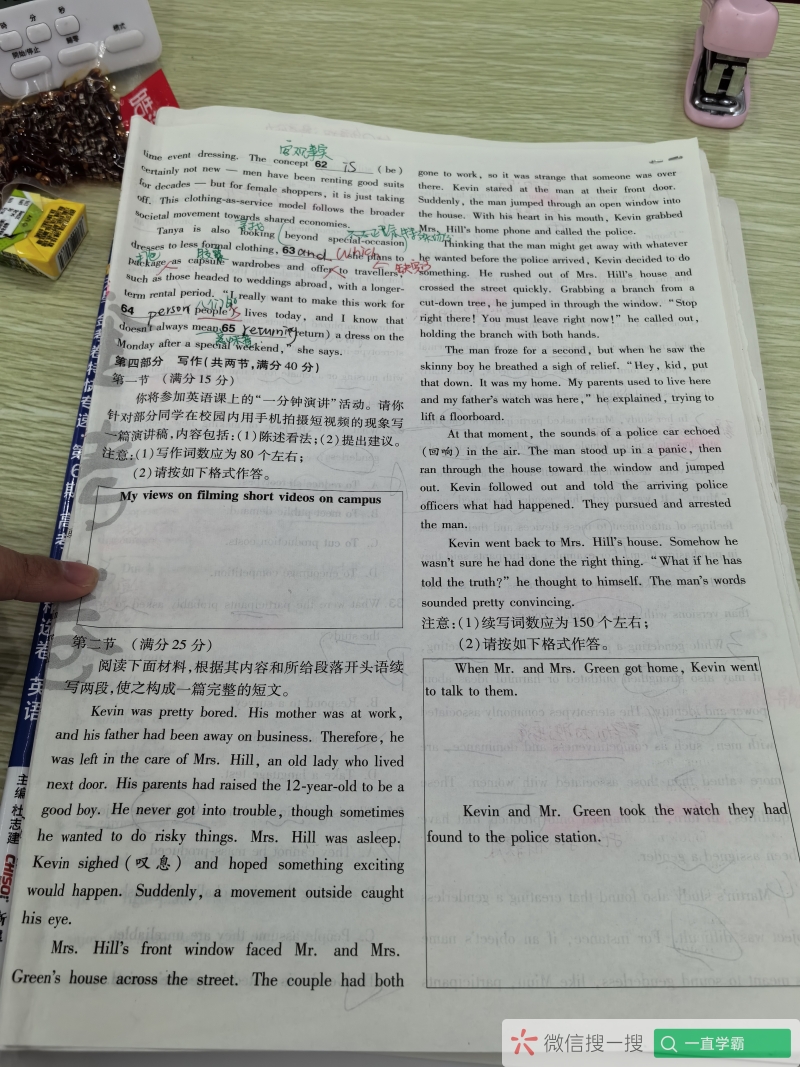 分 秒
開始/停止 歸零 模式
time event dressing. The concept 62 is (be)
客观事实
certainly not new — men have been renting good suits
for decades — but for female shoppers, it is just taking
off. This clothing-as-service model follows the broader
societal movement towards shared economies.
Tanya is also looking beyond special-occasion
dresses to less formal clothing, 63 and she plans to
which
package as capsule wardrobes and offer to travellers,
such as those headed to weddings abroad, with a longer-
term rental period. "I really want to make this work for
人们的
64 person people's lives today, and I know that
doesn't always mean 65 returning (return) a dress on the
意味着
Monday after a special weekend," she says.
第四部分 写作(共两节,满分 40 分)
第一节 (满分 15 分)
你将参加英语课上的“一分钟演讲”活动。请你
针对部分同学在校园内用手机拍摄短视频的现象写
一篇演讲稿,内容包括:(1)陈述看法;(2)提出建议。
注意:(1)写作词数应为 80 个左右;
(2)请按如下格式作答。
My views on filming short videos on campus
第二节 (满分 25 分)
阅读下面材料,根据其内容和所给段落开头语续
写两段,使之构成一篇完整的短文。
Kevin was pretty bored. His mother was at work,
and his father had been away on business. Therefore, he
was left in the care of Mrs. Hill, an old lady who lived
next door. His parents had raised the 12-year-old to be a
good boy. He never got into trouble, though sometimes
he wanted to do risky things. Mrs. Hill was asleep.
Kevin sighed(叹息) and hoped something exciting
would happen. Suddenly, a movement outside caught
his eye.
Mrs. Hill's front window faced Mr. and Mrs.
Green's house across the street. The couple had both
gone to work, so it was strange that someone was over
there. Kevin stared at the man at their front door.
Suddenly, the man jumped through an open window into
the house. With his heart in his mouth, Kevin grabbed
Mrs. Hill's home phone and called the police.
Thinking that the man might get away with whatever
he wanted before the police arrived, Kevin decided to do
something. He rushed out of Mrs. Hill's house and
crossed the street quickly. Grabbing a branch from a
cut-down tree, he jumped in through the window. "Stop
right there! You must leave right now!" he called out,
holding the branch with both hands.
The man froze for a second, but when he saw the
skinny boy he breathed a sigh of relief. "Hey, kid, put
that down. It was my home. My parents used to live here
and my father's watch was here," he explained, trying to
lift a floorboard.
At that moment, the sounds of a police car echoed
(回响) in the air. The man stood up in a panic, then
ran through the house toward the window and jumped
out. Kevin followed out and told the arriving police
officers what had happened. They pursued and arrested
the man.
Kevin went back to Mrs. Hill's house. Somehow he
wasn't sure he had done the right thing. "What if he has
told the truth?" he thought to himself. The man's words
sounded pretty convincing.
注意:(1)续写词数应为 150 个左右;
(2)请按如下格式作答。
When Mr. and Mrs. Green got home, Kevin went
to talk to them.
Kevin and Mr. Green took the watch they had
found to the police station.
英语
主编 杜志建
微信搜一搜
一直学霸